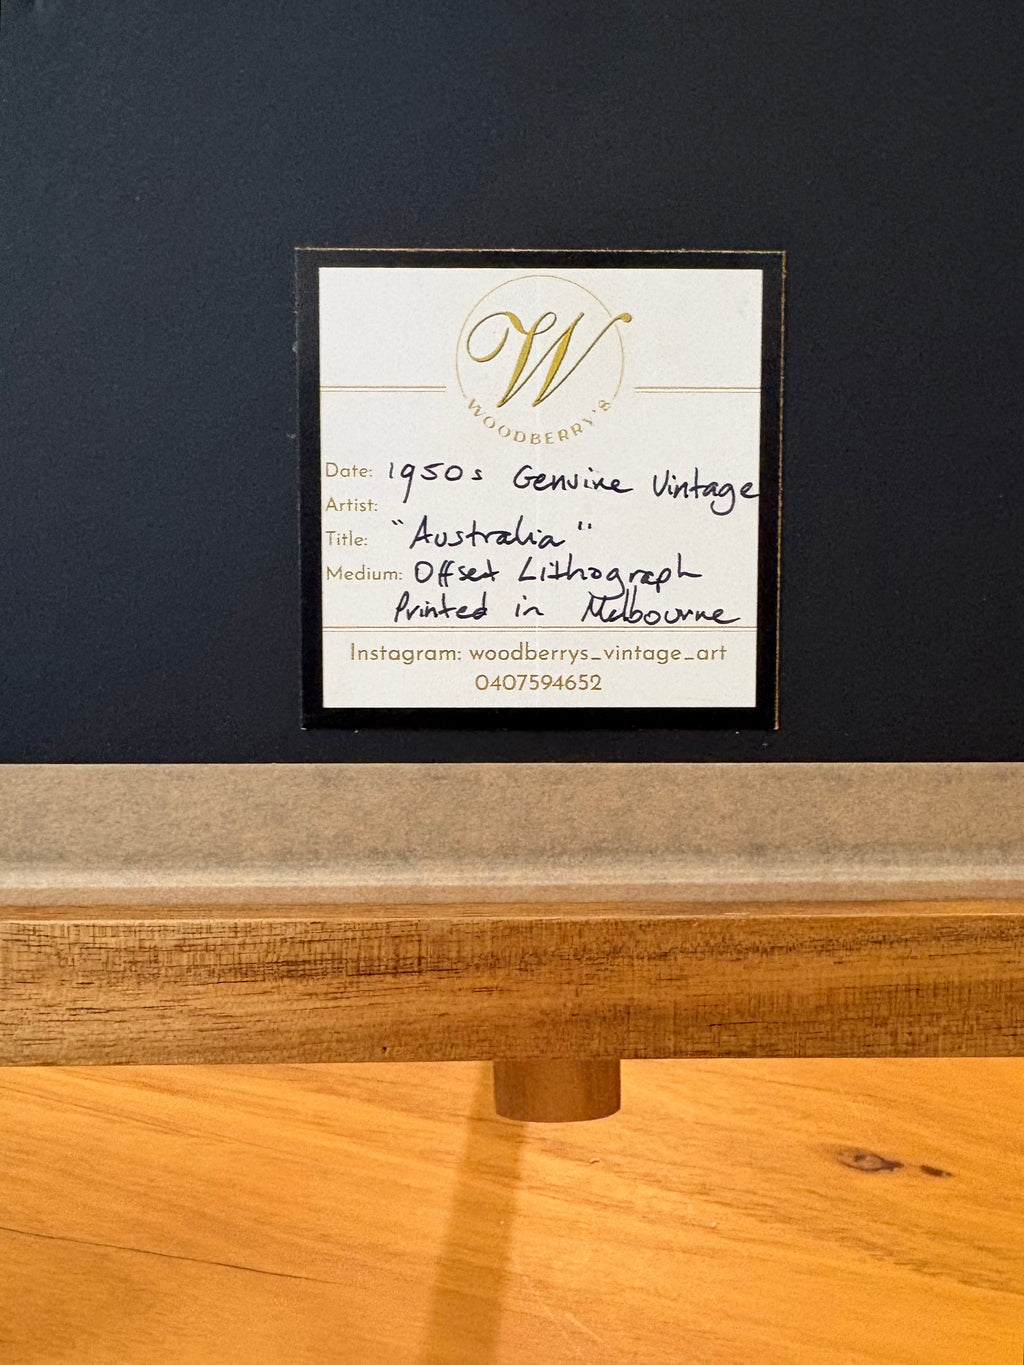 W
WOODBERRY'S
Date: 1950s Genuine Vintage
Artist:
Title: "Australia"
Medium: Offset Lithograph
Printed in Melbourne
Instagram: woodberrys_vintage_art
0407594652